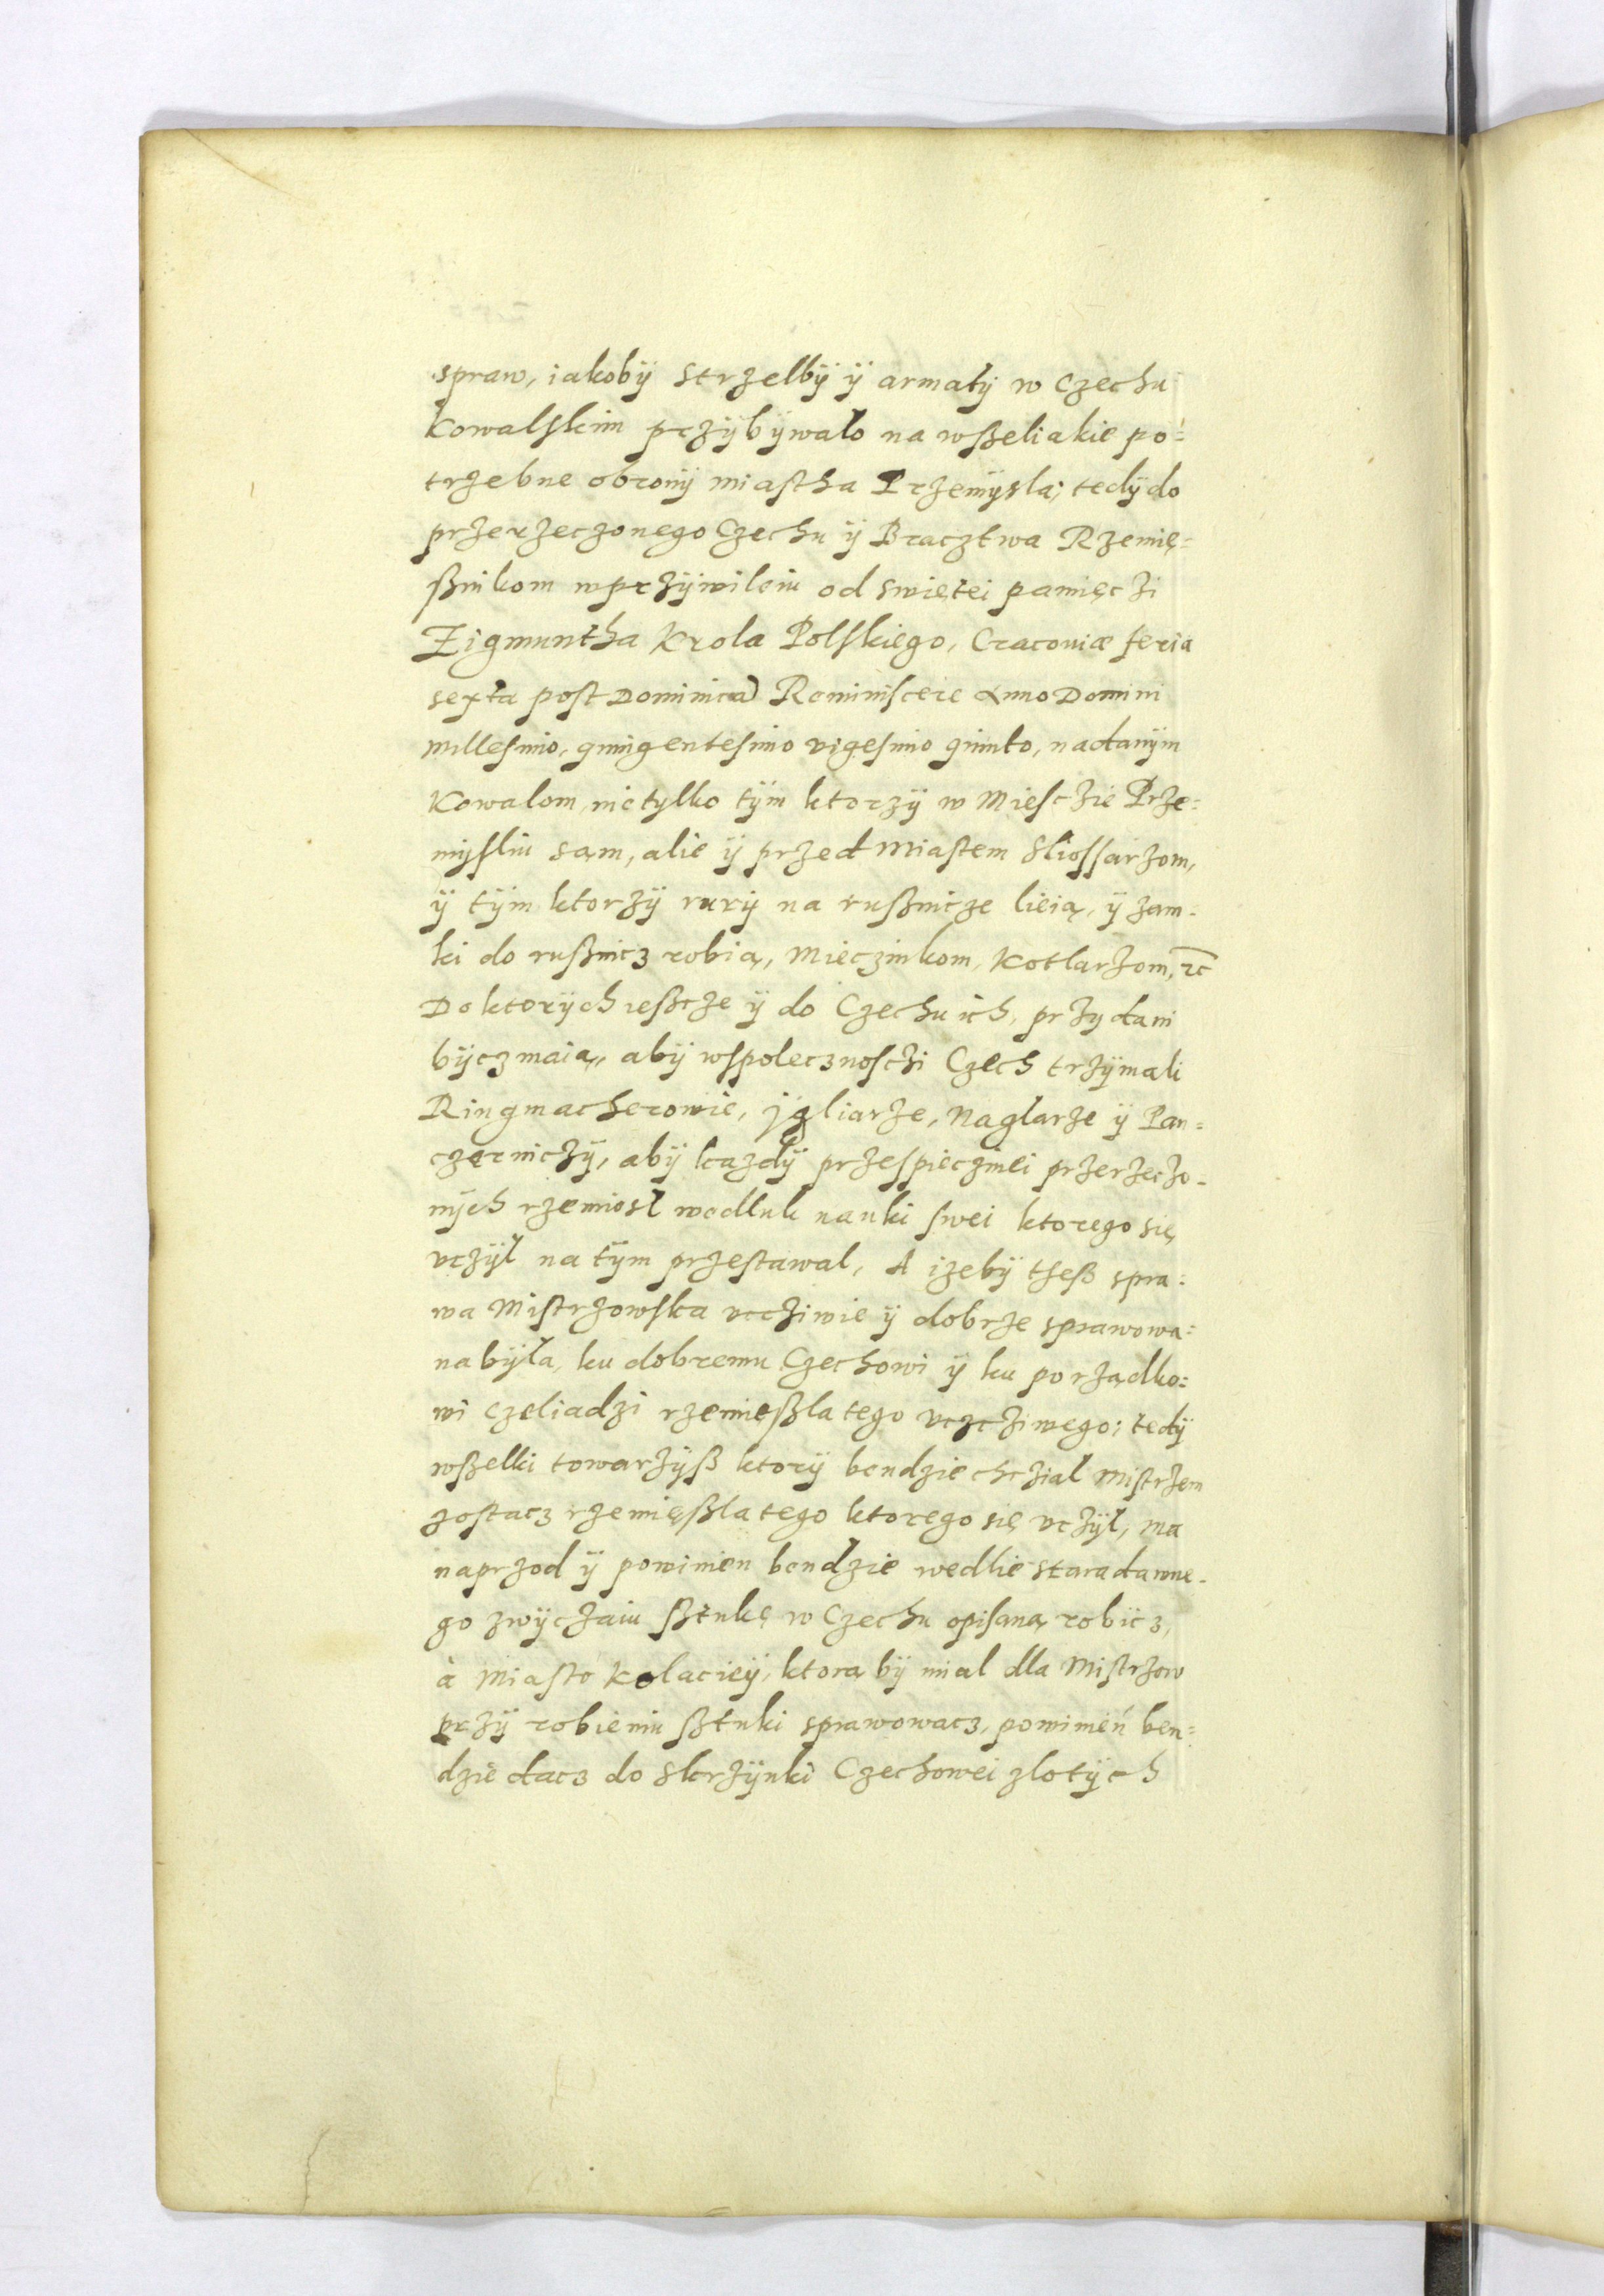 spraw, iakobÿ Strzelbÿ ÿ armatÿ w Czechu
Kowalskim przÿbÿwało na wßeliakie po=
trzebne obronÿ miastha Przemÿsla; tedÿ do
przerzeczonego Czechu ÿ Bracztwa Rzemię=
ßnikom w przÿwileiu od swiętei pamięczi
Zigmuntha Krola Polskiego, Cracoviæ feria
sexta post Dominicā Reminiscere Anno Domini
millesimo, quingentesimo vigesimo quinto, nadanÿm
Kowalom, nie tylko tÿm ktorzÿ w Miesczie Prze=
mysliu sąm, alie ÿ przed Miastem Sliossarzom,
ÿ tÿm ktorzÿ rurÿ na rußnicze lieią, ÿ zam-
ki do rußnicz robią, Miecznikom, Kotlarzom, ꝛc
Do ktorÿch ießcze ÿ do Czechu ich, przydani
bÿcz maią, abÿ wspolecznosczi Czech trzÿmali
Ringmacherowie, jgliarze, Naglarze ÿ Pan=
czerniczÿ, abÿ kazdÿ przespiecznei przerzeczo-
nÿch rzemiosł wedluk nauki swei ktorego się
vczÿł na tÿm przestawal, A izebÿ theß spra=
wa Mistrzowska vccziwie ÿ dobrze sprawowa=
na bÿła, ku dobremu Czechowi ÿ ku porządko=
wi czeliadzi rzemięßla tego vczcziwego; tedÿ
wßelki towarzÿß ktorÿ bendzie chcział Mistrzem
zostacz rzemięßla tego ktorego się vczÿł, ma
naprzod ÿ powinien bendzie wedlie staradawne-
go zwÿczaiu sztukę w Czechu opisaną robicz,
à Miasto Kolacieÿ, ktorą bÿ mial dla Mistrzow
przÿ robieniu sztuki sprawowacz, powinień ben=
dzie dacz do Skrzÿnki Czechowei zlotÿch